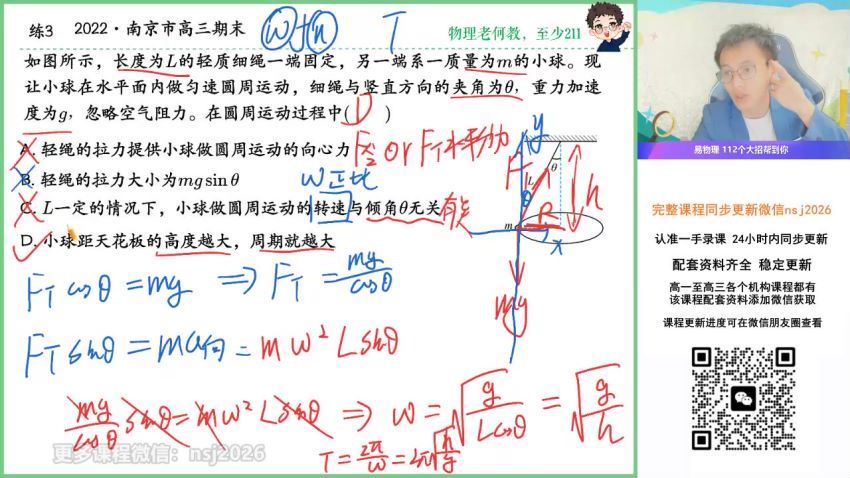 练3 2022·南京市高三期末 ω 大n T
物理老何教，至少211
如图所示，长度为L的轻质细绳一端固定，另一端系一质量为m的小球。现
让小球在水平面内做匀速圆周运动，细绳与竖直方向的夹角为θ，重力加速
度为g，忽略空气阻力。在圆周运动过程中( D )
A. 轻绳的拉力提供小球做圆周运动的向心力 F合 or FT水平分力
B. 轻绳的拉力大小为mgsinθ ω正比
C. L一定的情况下，小球做圆周运动的转速与倾角θ无关 有关
D. 小球距天花板的高度越大，周期就越大
y
FT
L
θ
θ
h
m
R
x
mg
FT cosθ = mg ⇒ FT = mg/cosθ
FT sinθ = ma向 = mω²Lsinθ
mg/cosθ sinθ = mω²Lsinθ ⇒ ω = √(g/Lcosθ) = √(g/h)
T = 2π/ω = 2π√(h/g)
更多课程微信：nsj2026
易物理 112个大招帮到你
完整课程同步更新微信nsj2026
认准一手录课 24小时内同步更新
配套资料齐全 稳定更新
高一至高三各个机构课程都有
该课程配套资料添加微信获取
课程更新进度可在微信朋友圈查看